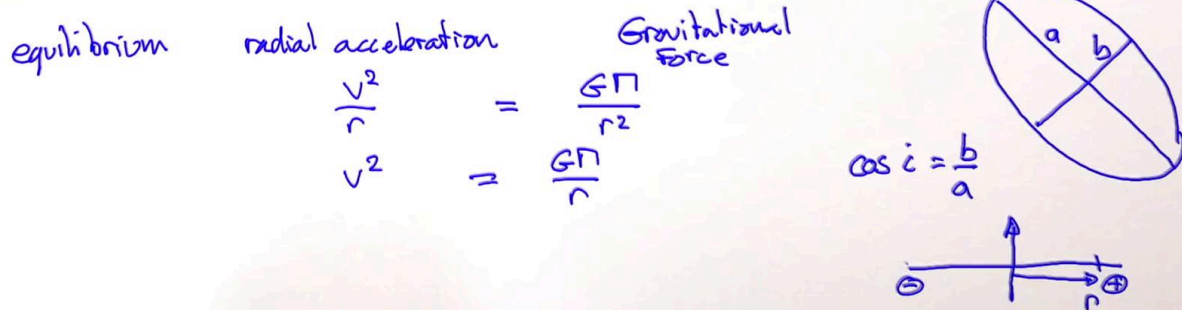 equilibrium radial acceleration Gravitational Force
v²/r = GM/r²
v² = GM/r
a
b
cos i = b/a
⊖ r ⊕